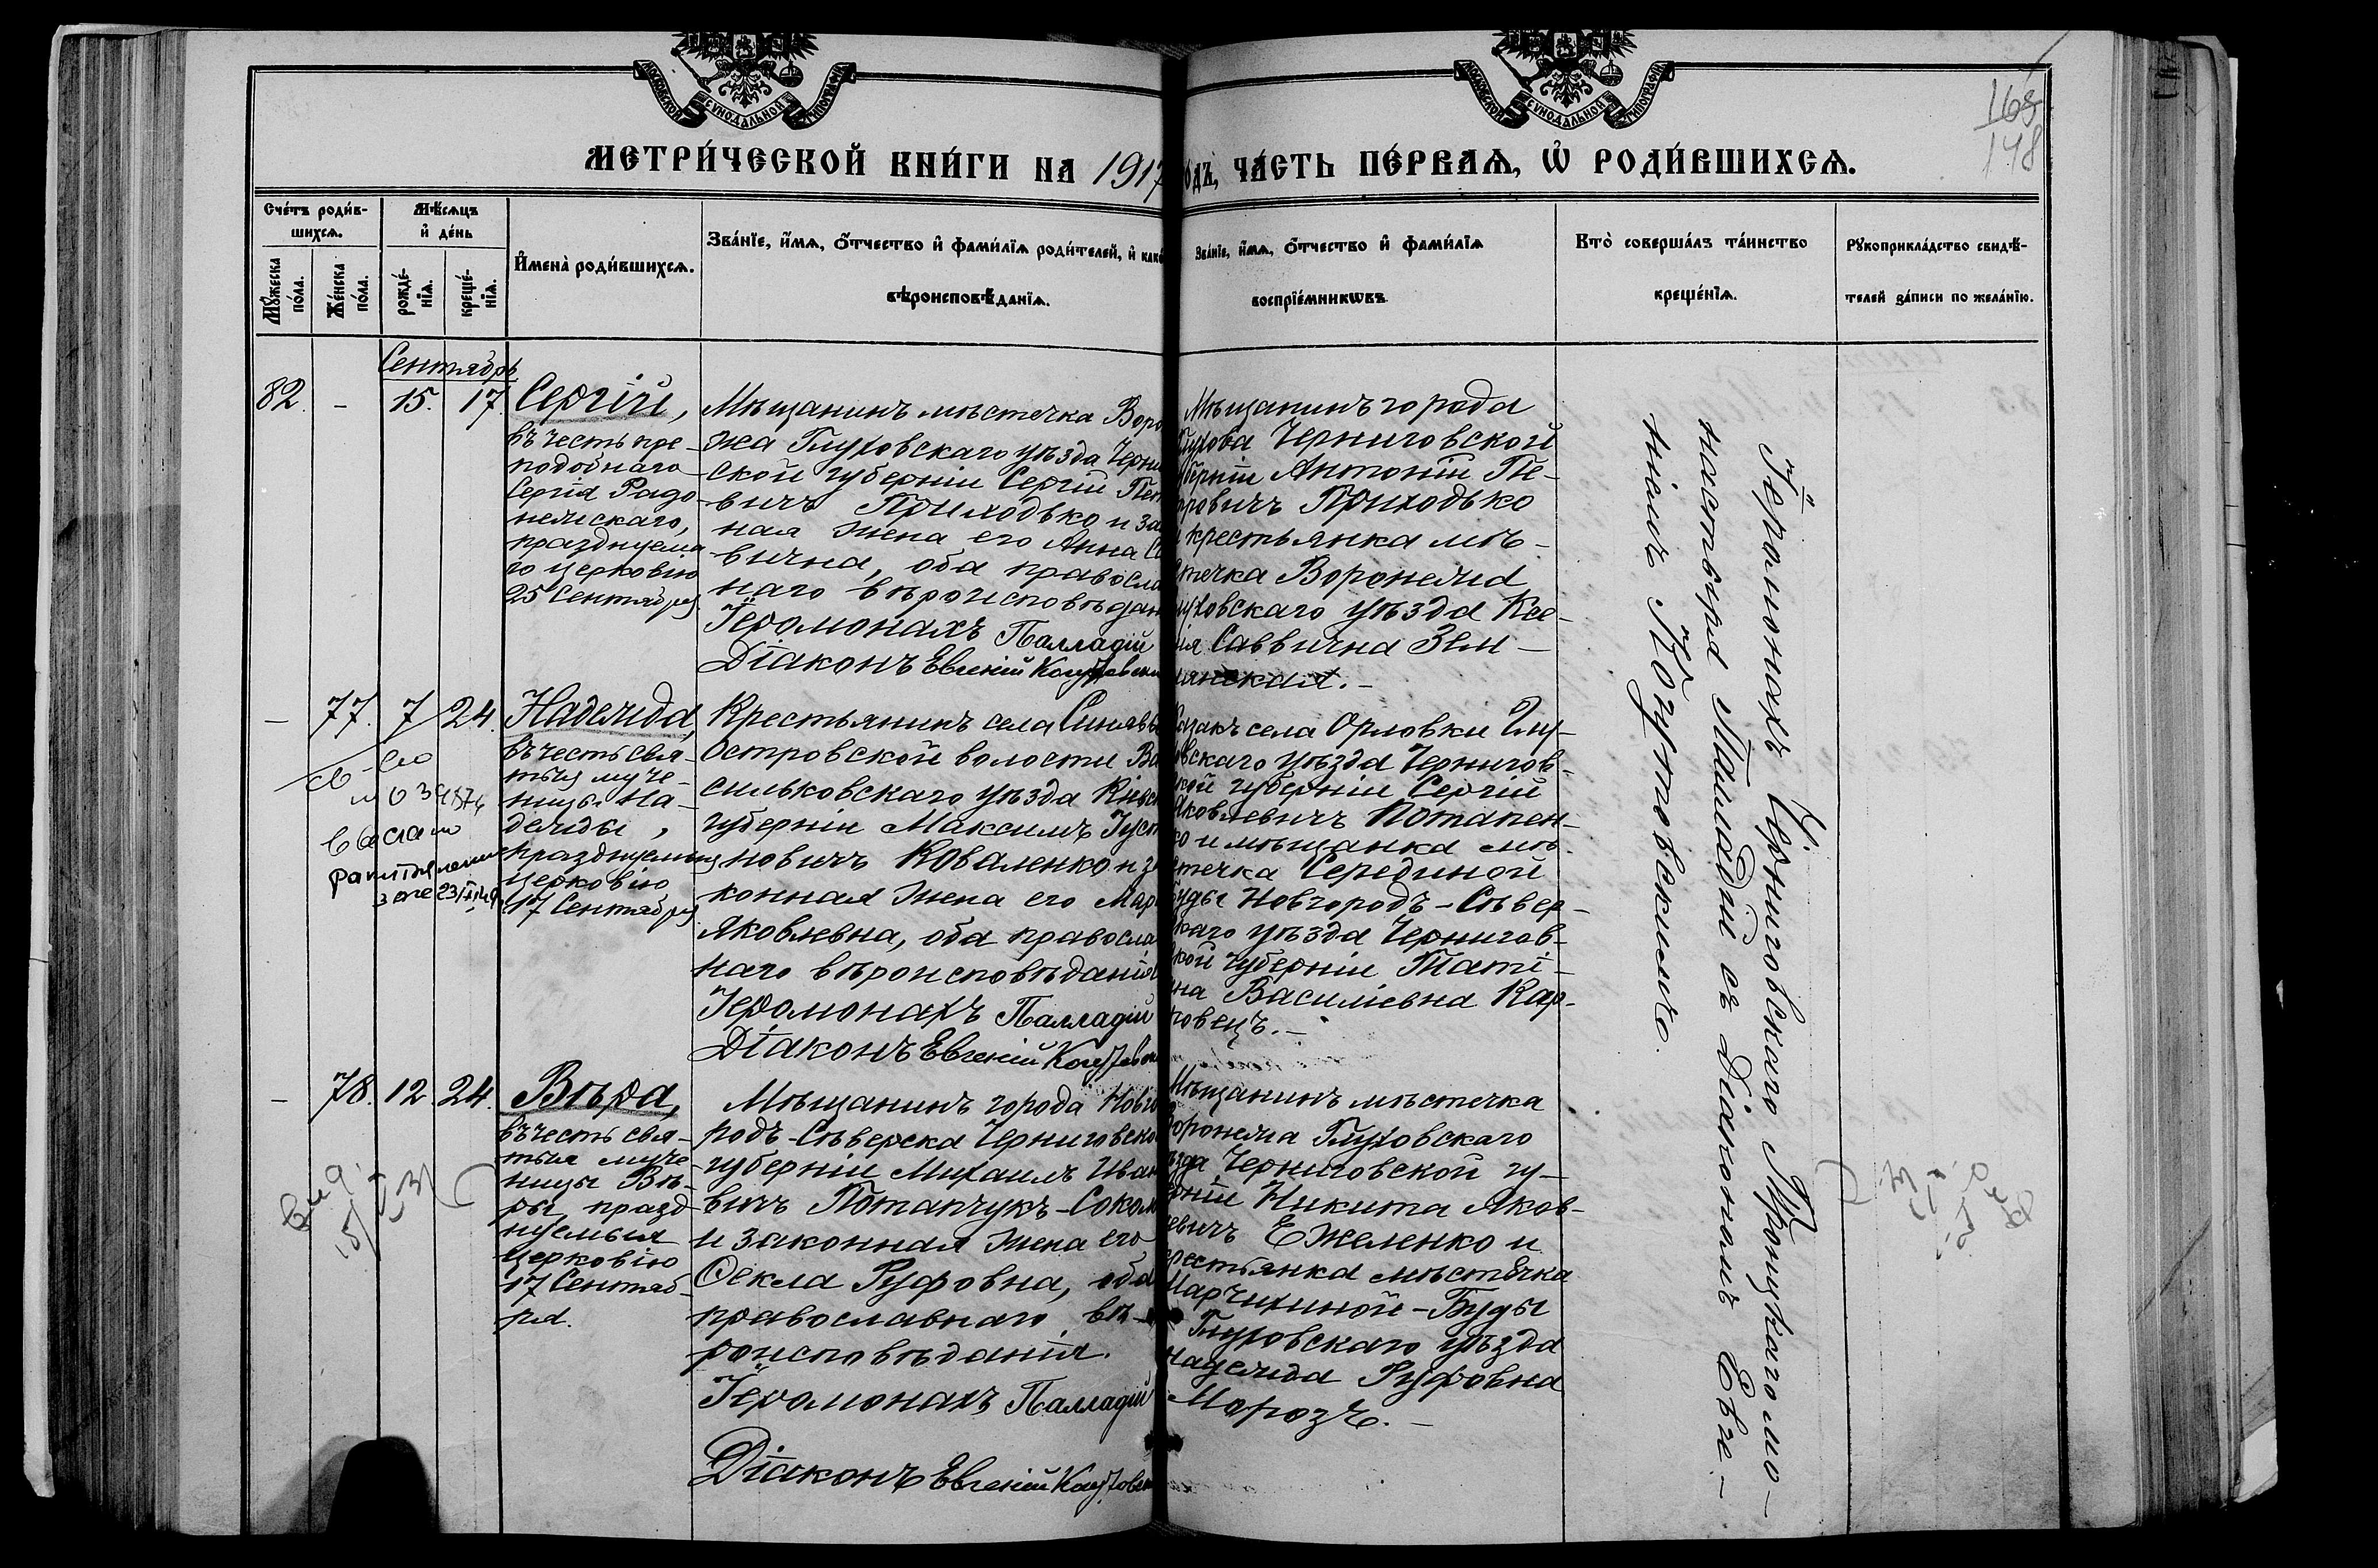 МОСКОВСКОЙ СѴНОДАЛЬНОЙ ТИПОГРАФІИ
МОСКОВСКОЙ СѴНОДАЛЬНОЙ ТИПОГРАФІИ
165
148
МЕТРИ́ЧЕСКОЙ КНИ́ГИ НА 1917
одъ, ЧА́СТЬ ПЕ́РВАѦ, Ѡ҆ РОДИ́ВШИХСѦ.
Сче́тъ роди́в-
шихсѧ.
Мꙋ́жеска по́ла.
Же́нска по́ла.
Мѣ́сѧцъ
и҆ де́нь
рожде́-
нїѧ.
креще́-
нїѧ.
И҆мена̀ роди́вшихсѧ.
Зва́нїе, и҆́мѧ, ѻ҆́тчество и҆ фами́лїѧ роди́телей, и҆ како
вѣроисповѣ́данїѧ.
Зва́нїе, и҆́мѧ, ѻ҆́тчество и҆ фами́лїѧ
воспрїе́мникѡвъ
Кто̀ соверша́лъ та́инство
креще́нїѧ.
Рꙋкоприкла́дство свидѣ́-
телей за́писи по жела́нїю.
Сентябрь
82. - 15. 17.
Сергій,
въ честь пре-
подобнаго
Сергія Радо-
нежскаго,
празднуема
го церковію
25 Сентября
Мѣщанинъ мѣстечка Воро
жа Глуховскаго уѣзда Черни
ской губерніи Сергій Пет
вичъ Приходько и за
ная жена его Анна С
вична, оба правосла
наго вѣроисповѣдан
Іеромонахъ Палладій
Діаконъ Евгеній
Мѣщанинъ города
Глухова Черниговской
губерніи Антоній Пе-
тровичъ Приходько
и крестьянка мѣ-
стечка Воронежа
луховскаго уѣзда Ксе-
нія Саввична Зем-
лянская.-
- 77. 7 24.
Надежда,
въ честь свя-
тыя муче-
ницы На-
дежды,
празднуемыя
церковію
17 Сентября
Крестьянинъ села Синявы
Островской волости Ва
сильковскаго уѣзда Кіевск
губерніи Максимъ Іуст
новичъ Коваленко и за
конная жена его Мар
Яковлевна, оба правосла
наго вѣроисповѣданія
Іеромонахъ Палладій
Діаконъ Евгеній
Козакъ села Орловки Глу-
овскаго уѣзда Чернигов-
ской губерніи Сергій
Яковлевичъ Потапен-
ко и мѣщанка мѣ-
стечка Серединой
Буды Новгородъ-Сѣвер-
скаго уѣзда Чернигов-
ской губерніи Таті-
яна Василіевна Кар-
повецъ.-
- 78. 12 24.
Вѣра,
въ честь свя-
тыя муче-
ницы Вѣ-
ры, празд-
нуемыя
церковію
17 Сентяб-
ря.
Мѣщанинъ города Новго
родъ-Сѣверска Черниговско
губерніи Михаилъ Иван
вичъ Потапчукъ-Сокол
и законная жена его
Ѳекла Руфовна, оба
православнаго вѣ-
роисповѣданія.
Іеромонахъ Палладій
Діаконъ Евгеній
Мѣщанинъ мѣстечка
Воронежа Глуховскаго
ѣзда Черниговской гу-
берніи Никита Яков-
левичъ Ежеленко и
крестьянка мѣстечка
Марчихиной-Буды
Глуховскаго уѣзда
Надежда Руфовна
Морозъ.-
Іеромонахъ Черниговскаго Троицкаго мо-
настыря Палладій съ діакономъ Евге-
ніемъ